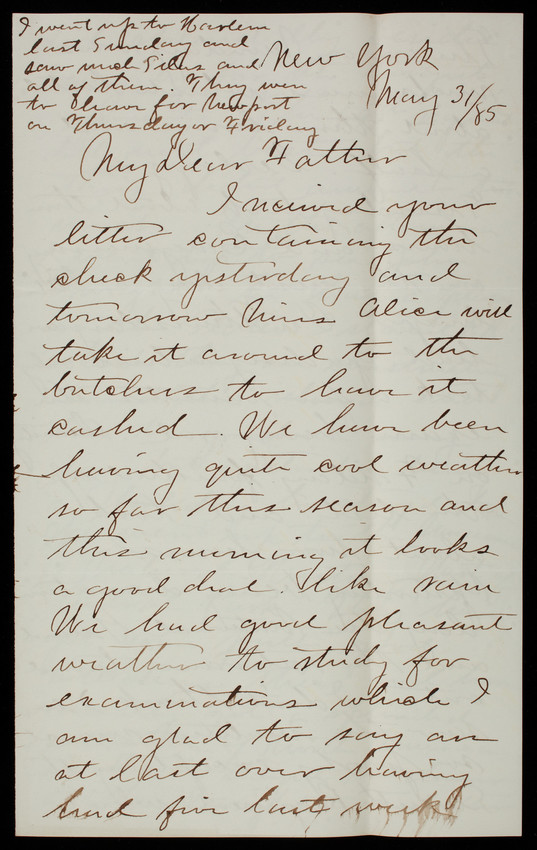 I went up to Harlem
last Sunday and
saw and
all of them. They were
to leave for Newport
on Thursday or Friday
New York
May 31/85
My Dear Father
I received your
letter containing the
check yesterday and
tomorrow Miss Alice will
take it around to the
butchers to have it
cashed. We have been
having quite cool weather
so far this season and
this morning it looks
a good deal like rain
We had good pleasant
weather to study for
examinations which I
am glad to say are
at last over having
had five last week